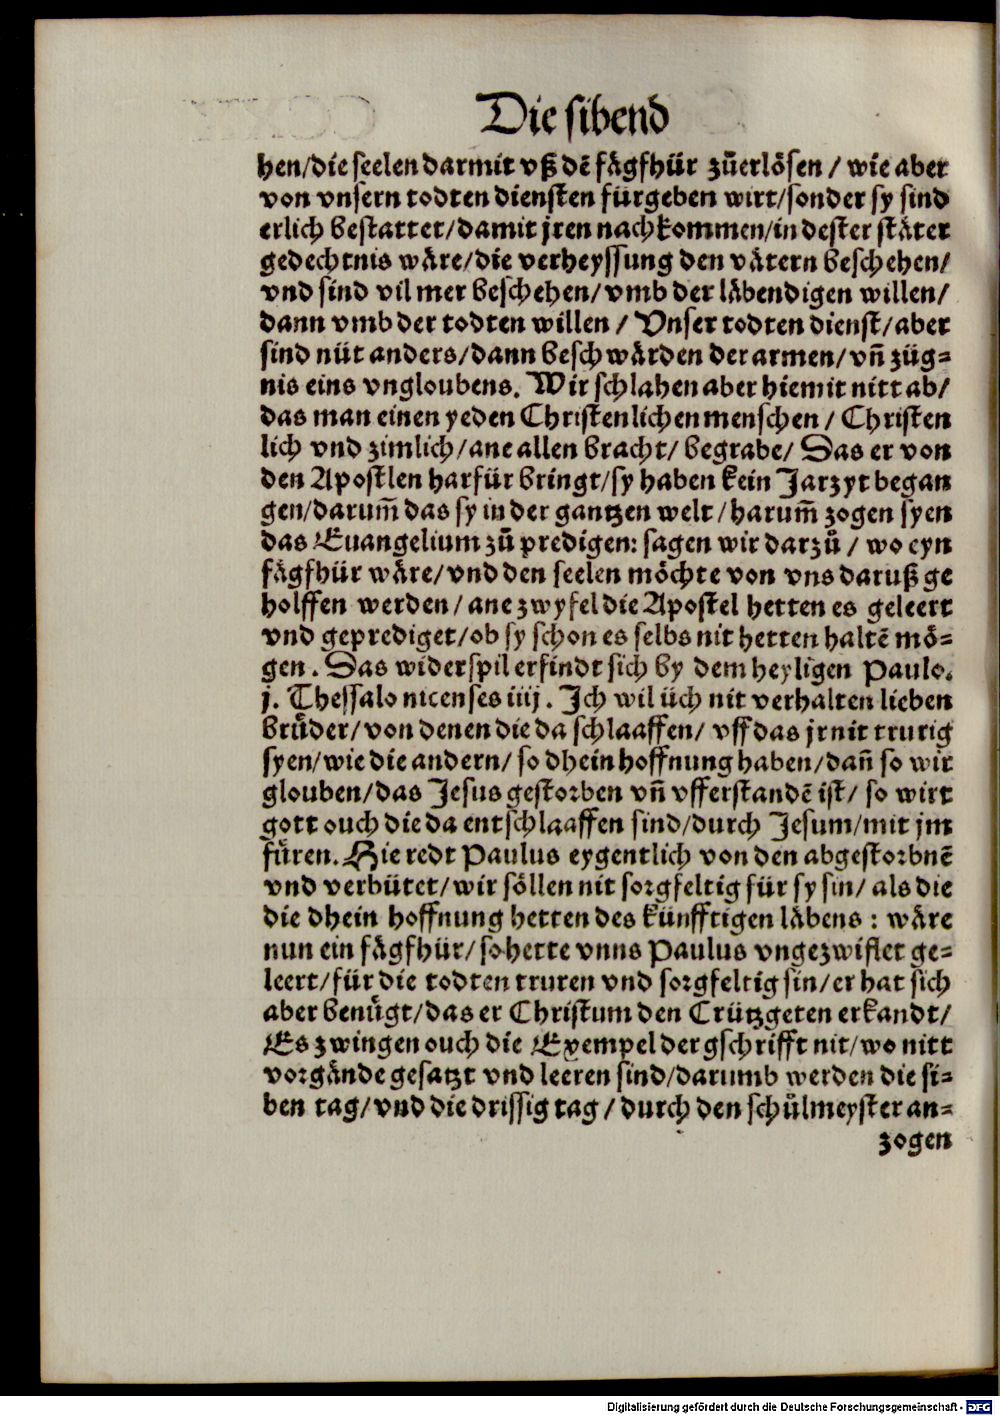 Die sibend
hen/die seelen darmit vß dē fägfhür zůerlösen / wie aber
von vnsern todten diensten fürgeben wirt/sonder sy sind
erlich bestattet/damit jren nachkommen/in dester stäter
gedechtnis wäre/die verheyssung den vätern beschehen/
vnd sind vil mer beschehen/vmb der läbendigen willen/
dann vmb der todten willen / Vnser todten dienst/aber
sind nüt anders/dann beschwärden der armen/vñ züg⸗
nis eins vngloubens. Wir schlahen aber hiemit nitt ab/
das man einen yeden Christenlichen menschen / Christen
lich vnd zimlich/ane allen bracht/ begrabe/ Das er von
den Apostlen harfür bringt/sy haben kein Jarzyt began
gen/darum̄ das sy in der gantzen welt/harum̄ zogen syen
das Euangelium zů predigen: sagen wir darzů / wo eyn
fägfhür wäre/vnd den seelen möchte von vns daruß ge
holffen werden/ane zwyfel die Apostel hetten es geleert
vnd geprediget/ob sy schon es selbs nit hetten haltē mö⸗
gen. Das widerspil erfindt sich by dem heyligen Paulo.
j. Thessalonicenses iiij. Ich wil üch nit verhalten lieben
brüder/von denen die da schlaaffen/ vff das jr nit trurig
syen/wie die andern/ so dhein hoffnung haben/dañ so wir
glouben/das Jesus gestorben vñ vfferstandē ist/ so wirt
gott ouch die da entschlaaffen sind/durch Jesum/mit jm
füren. Hie redt Paulus eygentlich von den abgestorbnē
vnd verbütet/wir söllen nit sorgfeltig für sy sin/ als die
die dhein hoffnung hetten des künfftigen läbens : wäre
nun ein fägfhür/so hette vnns Paulus vngezwiflet ge⸗
leert/für die todten truren vnd sorgfeltig sin/er hat sich
aber benügt/das er Christum den Crützgeten erkandt/
Es zwingen ouch die Exempel der gschrifft nit/wo nitt
vorgände gesatzt vnd leeren sind/darumb werden die si⸗
ben tag/vnd die drissig tag / durch den schůlmeyster an⸗
zogen
Digitalisierung gefördert durch die Deutsche Forschungsgemeinschaft - DFG